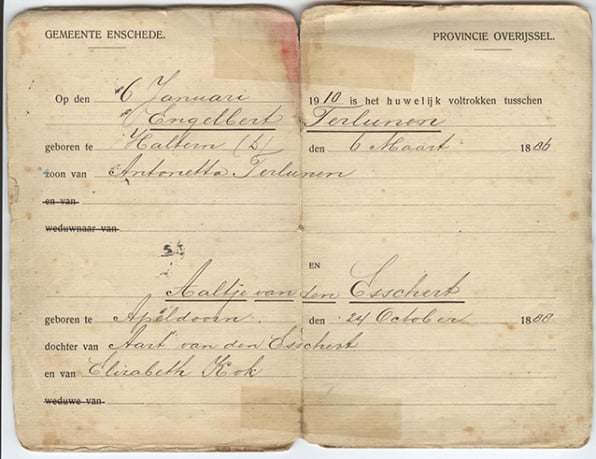 GEMEENTE ENSCHEDE. PROVINCIE OVERIJSSEL.
Op den 6 Januari 1910 is het huwelijk voltrokken tusschen
Engelbert Terlunen
geboren te Haltern (D) den 6 Maart 1886
zoon van Antonetta Terlunen
en van
weduwnaar van
EN
Aaltje van den Esschert
geboren te Apeldoorn. den 24 October 1888
dochter van Aart van den Esschert
en van Elizabeth Kok
weduwe van